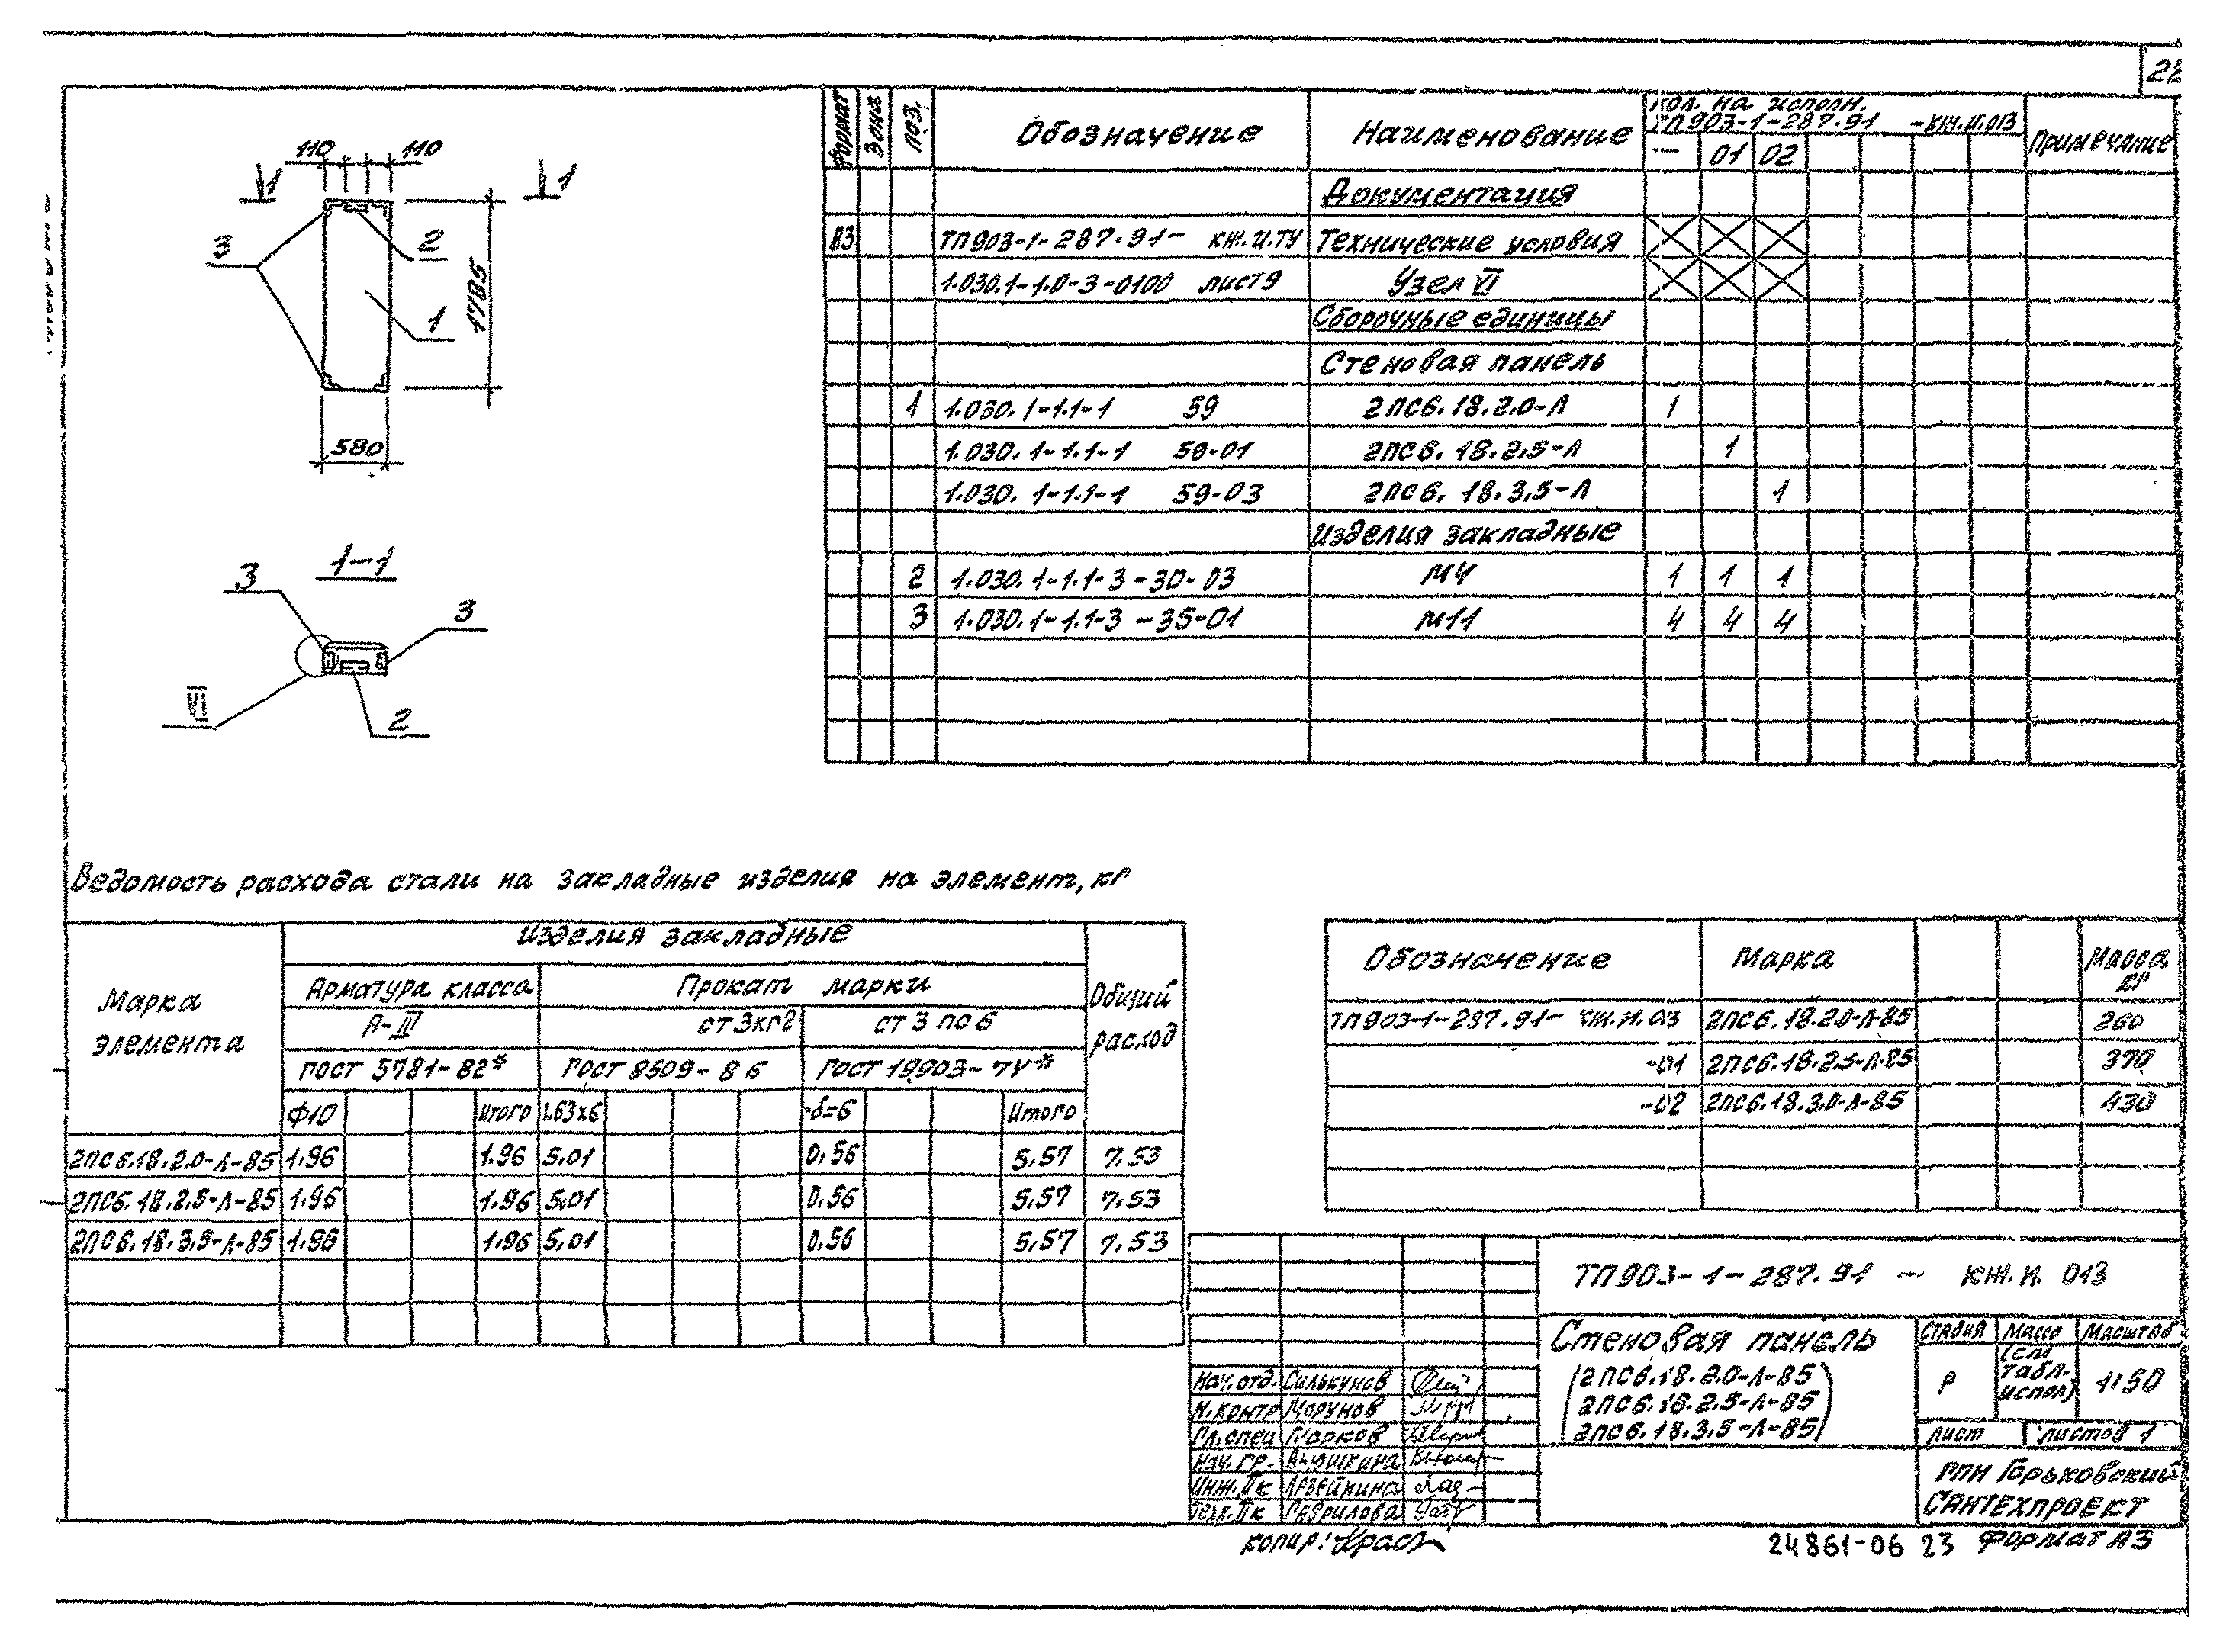 22
110 110
1 1
3 2
1785
1
580
1-1
3
3
VI
2
Формат Зона Поз. Обозначение Наименование Кол. на исполн. ТП903-1-287.91 -КЖ.И.013 Примечание
— 01 02
Документация
А3 ТП903-1-287.91- КЖ.И.ТУ Технические условия
1.030.1-1.0-3-0100 лист 9 Узел VI
Сборочные единицы
Стеновая панель
1 1.030.1-1.1-1 59 2ПС6.18.2.0-Л 1
1.030.1-1.1-1 59-01 2ПС6.18.2.5-Л 1
1.030.1-1.1-1 59-03 2ПС6.18.3.5-Л 1
Изделия закладные
2 1.030.1-1.1-3-30-03 М4 1 1 1
3 1.030.1-1.1-3-35-01 М11 4 4 4
Ведомость расхода стали на закладные изделия на элемент, кг
Марка элемента Изделия закладные Общий расход
Арматура класса Прокат марки
А-III ст3кг2 ст3пс6
ГОСТ 5781-82* ГОСТ 8509-86 ГОСТ 19903-74*
Ф10 Итого L63х6 -δ=6 Итого
2ПС6.18.2.0-Л-85 1.96 1.96 5.01 0.56 5.57 7.53
2ПС6.18.2.5-Л-85 1.96 1.96 5.01 0.56 5.57 7.53
2ПС6.18.3.5-Л-85 1.96 1.96 5.01 0.56 5.57 7.53
Обозначение Марка Масса кг
ТП903-1-287.91- КЖ.И.013 2ПС6.18.2.0-Л-85 260
-01 2ПС6.18.2.5-Л-85 370
-02 2ПС6.18.3.0-Л-85 430
ТП903-1-287.91 — КЖ.И.013
Стеновая панель
(2ПС6.18.2.0-Л-85
2ПС6.18.2.5-Л-85
2ПС6.18.3.5-Л-85)
Стадия Масса Масштаб
Р (см. табл. испол) 1:50
Лист Листов 1
Нач.отд. Силькунов
Н.контр Морунов
Гл.спец Марков
Нач.гр.
Инж.IIк
Техн.IIк Гаврилова
ГПИ Горьковский
САНТЕХПРОЕКТ
копир: Храс
24861-06 23 Формат А3